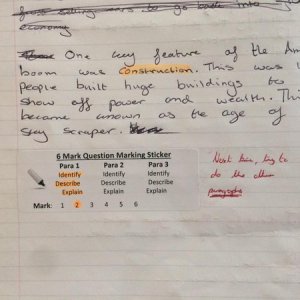 from selling cars to go back into you
economy
One key feature of the Am
boom was construction. This was
People built huge buildings to
show off power and wealth. This
became known as the age of
sky scraper.
6 Mark Question Marking Sticker
Para 1 Para 2 Para 3
Identify Identify Identify
Describe Describe Describe
Explain Explain Explain
Mark: 1 2 3 4 5 6
Next time, try to
do the other
paragraphs